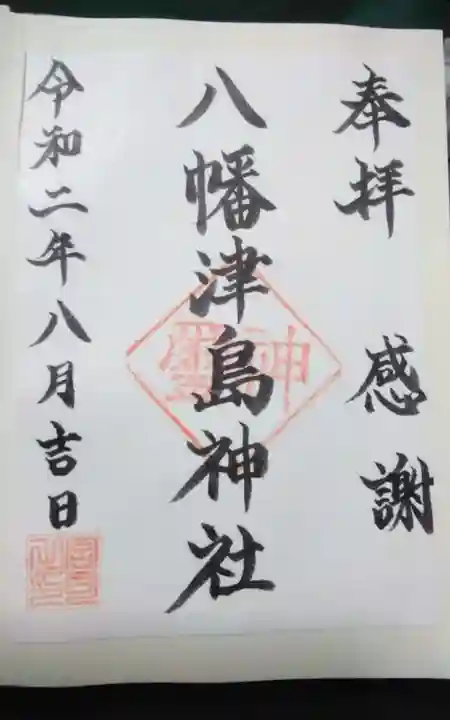 奉拝 感謝
八幡津島神社
神璽
令和二年八月吉日